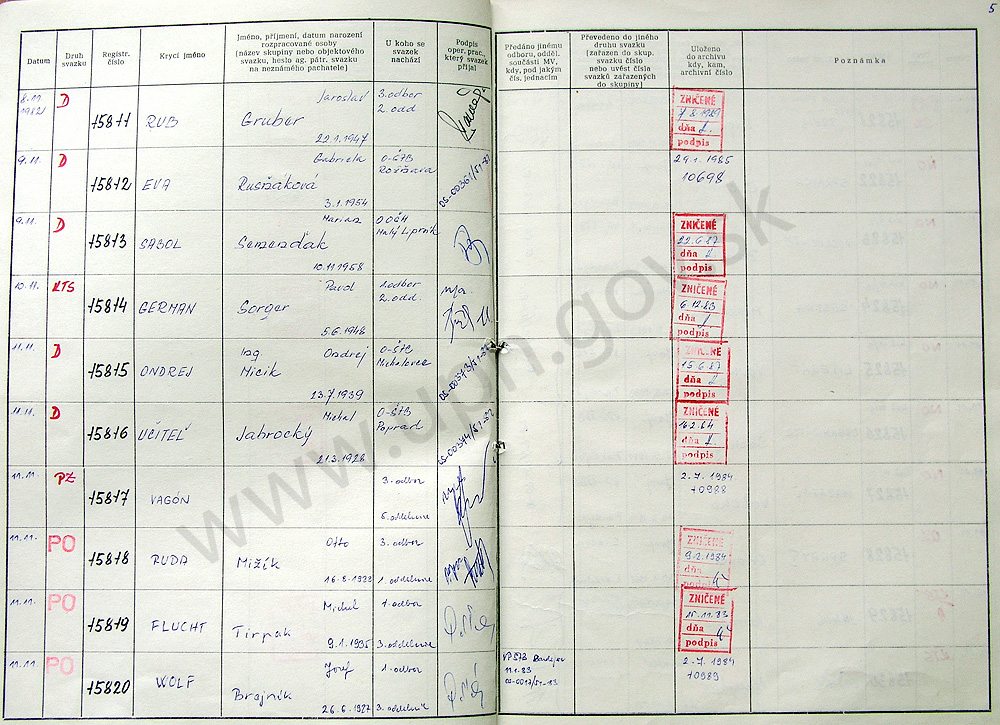 5
Datum
Druh svazku
Registr. číslo
Krycí jméno
Jméno, příjmení, datum narození
rozpracované osoby
(název skupiny nebo objektového
svazku, heslo ag. pátr. svazku
na neznámého pachatele)
U koho se
svazek
nachází
Podpis
oper. prac.,
který svazek
přijal
Předáno jinému
odboru, odděl.
součásti MV,
kdy, pod jakým
čís. jednacím
Převedeno do jiného
druhu svazku
(zařazen do skup.
svazku číslo
nebo uvést čísla
svazků zařazených
do skupiny)
Uloženo
do archivu
kdy, kam,
archivní číslo
Poznámka
8.11.
1982
D
15811
RUB
Jaroslav
Gruber
22.1.1947
3. odbor
2. odd
ZNIČENÉ
dňa
podpis
9.11.
D
15812
EVA
Gabriela
Rusňáková
3.1.1954
O-ŠTB
Rožňava
29.1.1985
10698
9.11.
D
15813
SABOL
Marian
Semenďák
10.11.1958
Malý Lipník
ZNIČENÉ
22.6.87
dňa
podpis
10.11.
KTS
15814
GERMAN
Pavol
Sorger
5.6.1948
2. odd.
ZNIČENÉ
6.12.83
dňa
podpis
11.11.
D
15815
ONDREJ
Ing Ondrej
Micik
23.7.1939
O-ŠTB
Michalovce
ZNIČENÉ
15.6.87
dňa
podpis
11.11.
D
15816
UČITEĽ
Michal
Jabrocký
21.3.1926
O-ŠTB
Poprad
ZNIČENÉ
16.2.84
dňa
podpis
11.11.
PZ
15817
VAGÓN
3. odbor
2.7.1984
10988
11.11.
PO
15818
RUDA
Otto
Mižík
3. odbor
1. oddelenie
ZNIČENÉ
9.2.1984
dňa
11.11.
PO
15819
FLUCHT
Michal
Tirpak
9.1.1935
1. odbor
3. oddelenie
ZNIČENÉ
15.11.83
dňa
podpis
11.11.
PO
15820
WOLF
Jozef
Brajnik
26.6.1927
1. odbor
3. oddelenie
11.1.83
2.7.1984
10989
www.upn.gov.sk